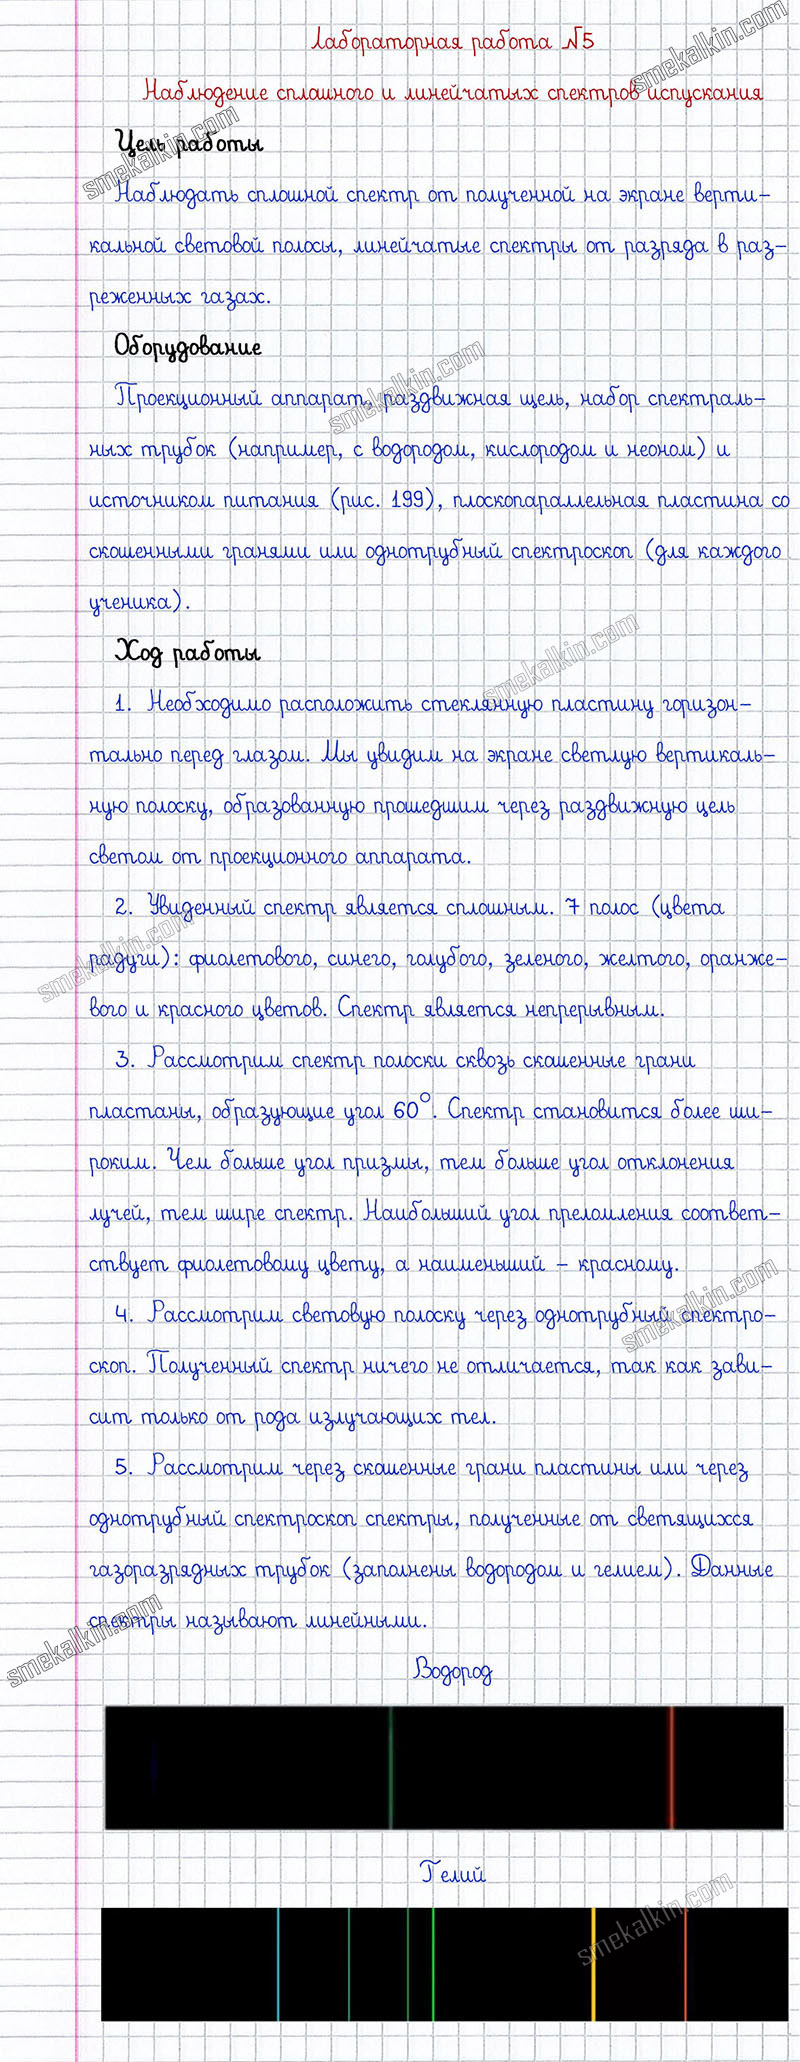 Лабораторная работа №5
Наблюдение сплошного и линейчатых спектров испускания
Цель работы
Наблюдать сплошной спектр от полученной на экране верти-
кальной световой полосы, линейчатые спектры от разряда в раз-
реженных газах.
Оборудование
Проекционный аппарат, раздвижная щель, набор спектраль-
ных трубок (например, с водородом, кислородом и неоном) и
источником питания (рис. 199), плоскопараллельная пластина со
скошенными гранями или однотрубный спектроскоп (для каждого
ученика).
Ход работы
1. Необходимо расположить стеклянную пластину горизон-
тально перед глазом. Мы увидим на экране светлую вертикаль-
ную полоску, образованную прошедшим через раздвижную цель
светом от проекционного аппарата.
2. Увиденный спектр является сплошным. 7 полос (цвета
радуги): фиолетового, синего, голубого, зеленого, желтого, оранже-
вого и красного цветов. Спектр является непрерывным.
3. Рассмотрим спектр полоски сквозь скошенные грани
пластаны, образующие угол 60°. Спектр становится более ши-
роким. Чем больше угол призмы, тем больше угол отклонения
лучей, тем шире спектр. Наибольший угол преломления соответ-
ствует фиолетовому цвету, а наименьший – красному.
4. Рассмотрим световую полоску через однотрубный спектро-
скоп. Полученный спектр ничего не отличается, так как зави-
сит только от рода излучающих тел.
5. Рассмотрим через скошенные грани пластины или через
однотрубный спектроскоп спектры, полученные от светящихся
газоразрядных трубок (заполнены водородом и гелием). Данные
спектры называют линейными.
Водород
Гелий
smekalkin.com
smekalkin.com
smekalkin.com
smekalkin.com
smekalkin.com
smekalkin.com
smekalkin.com
smekalkin.com